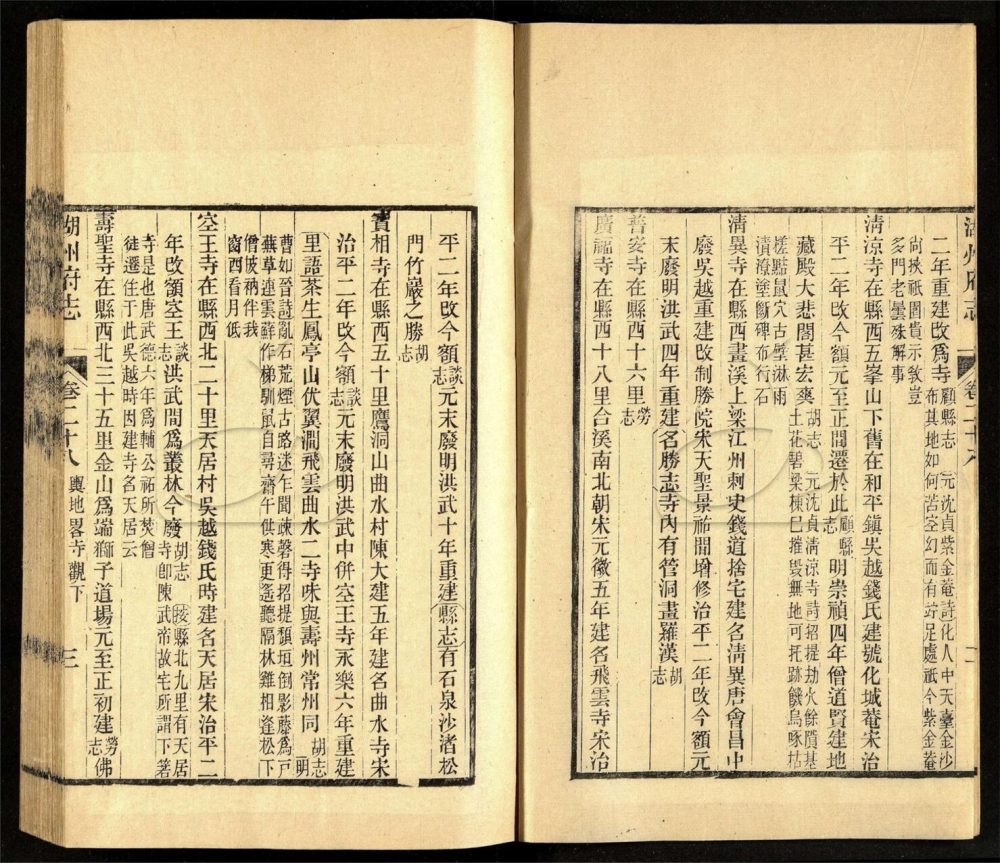 湖州府志
卷二十八
二年重建改爲寺顧縣志 元沈貞紫金菴詩化人中天臺金沙布其地如何苦空幻而有竚足處祇今紫金菴
尙挾祇園貴示敎豈多門老曇殊解事
淸涼寺在縣西五峯山下舊在和平鎭吳越錢氏建號化城菴宋治
平二年改今額元至正間遷於此顧縣志明崇禎四年僧道賢建地
藏殿大悲閣甚宏爽胡志 元沈貞淸涼寺詩招提劫火餘隤基土花碧梁棟已摧毀無地可托跡餓烏啄枯
槎點鼠穴古壁淋雨漬潦塗斷碑布行石
淸異寺在縣西畫溪上梁江州刺史錢道捨宅建名淸異唐會昌中
廢吳越重建改制勝院宋天聖景祐間增修治平二年改今額元
末廢明洪武四年重建名勝志寺內有管洞畫羅漢胡志
普安寺在縣西十六里勞志
廣福寺在縣西十八里合溪南北朝宋元徽五年建名飛雲寺宋治
平二年改今額談志元末廢明洪武十年重建縣志有石泉沙渚松
門竹巖之勝胡志
寶相寺在縣西五十里鷹洞山曲水村陳大建五年建名曲水寺宋
治平二年改今額談志元末廢明洪武中併空王寺永樂六年重建
里語茶生鳳亭山伏翼澗飛雲曲水二寺味與壽州常州同胡志 明
曹如晉詩亂石荒煙古路迷乍聞疎磬得招提頹垣倒影藤爲戶蕪草連雲蘚作梯馴鼠自尋齋午供寒更遙聽隔林雞相逢松下
僧披衲伴我窗西看月低
空王寺在縣西北二十里天居村吳越錢氏時建名天居宋治平二
年改額空王談志洪武間爲叢林今廢胡志 按縣北九里有天居寺卽陳武帝故宅所謂下箬
寺是也唐武德六年爲輔公祏所焚僧徒遷住于此吳越時因建寺名天居云
壽聖寺在縣西北三十五里金山爲端獅子道場元至正初建勞志佛
湖州府志
卷二十八 輿地畧寺觀下
三